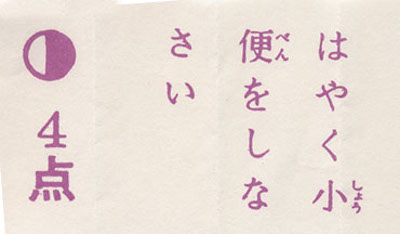 はやく小
便をしな
さい
4点